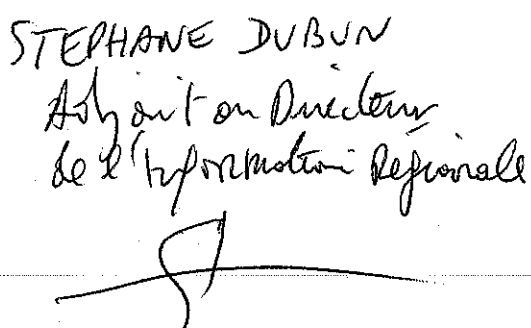 STEPHANE DUBUN
Adjoint au Directeur
de l'Information Régionale